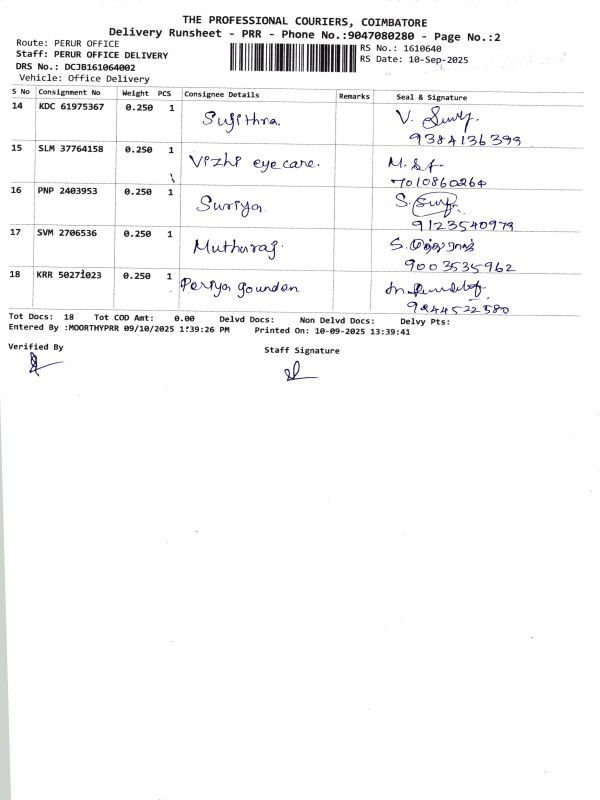 THE PROFESSIONAL COURIERS, COIMBATORE
Delivery Runsheet - PRR - Phone No.:9047080280 - Page No.:2
Route: PERUR OFFICE
Staff: PERUR OFFICE DELIVERY
DRS No.: DCJB161064002
Vehicle: Office Delivery
RS No.: 1610640
RS Date: 10-Sep-2025
S No Consignment No Weight PCS Consignee Details Remarks Seal & Signature
14 KDC 61975367 0.250 1 Sujithra. V.
9384136399
15 SLM 37764158 0.250 1 Vizhi eye care. M.
7010860264
16 PNP 2403953 0.250 1 Suriya S.
9123540979
17 SVM 2706536 0.250 1 Muthuraj. S.
9003535962
18 KRR 50271023 0.250 1 Periya goundan
9244522580
Tot Docs: 18 Tot COD Amt: 0.00 Delvd Docs: Non Delvd Docs: Delvy Pts:
Entered By :MOORTHYPRR 09/10/2025 1:39:26 PM Printed On: 10-09-2025 13:39:41
Verified By
Staff Signature